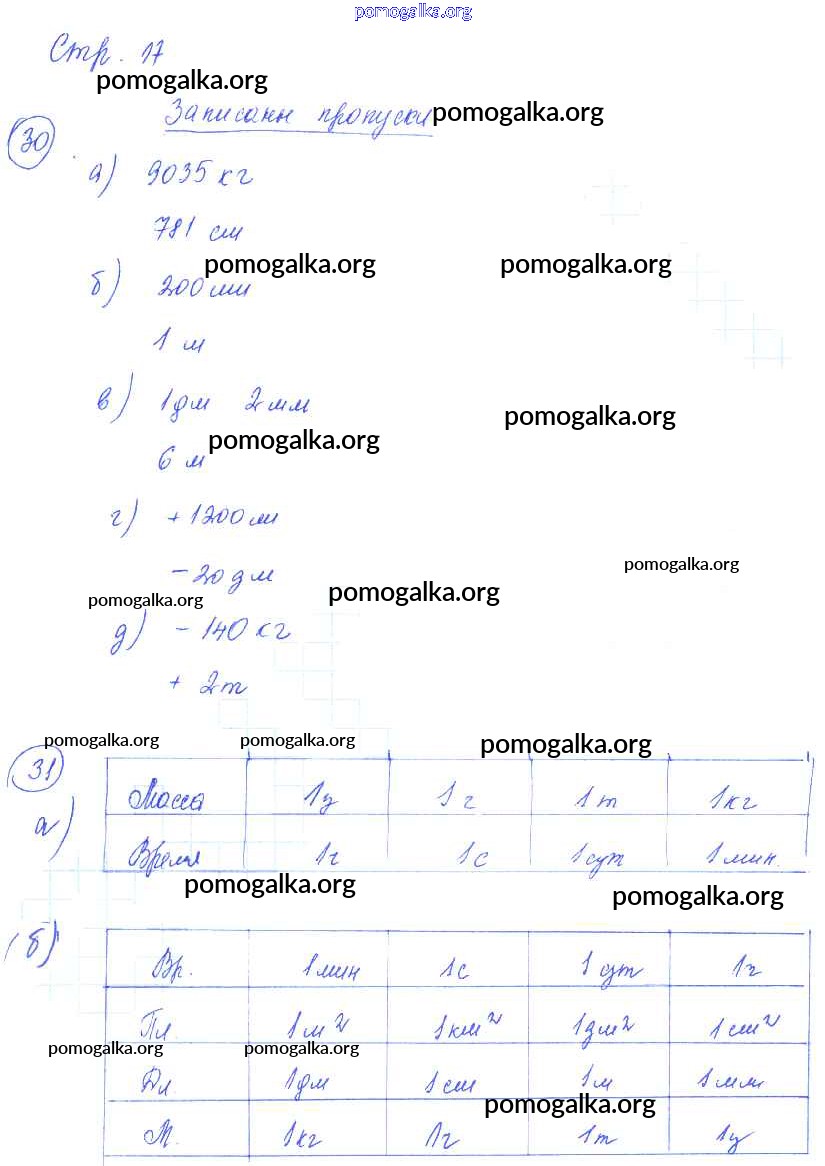 pomogalka.org
Стр. 17
pomogalka.org
Записаны пропуски pomogalka.org
30
а) 9035 кг
781 см
pomogalka.org pomogalka.org
б) 200 мм
1 м
в) 1 дм 2 мм
pomogalka.org
pomogalka.org
6 м
г) + 1200 м
- 20 дм
pomogalka.org
pomogalka.org
pomogalka.org
д) - 140 кг
+ 2 т
pomogalka.org pomogalka.org pomogalka.org
31
а) Масса 1ц 1г 1т 1кг
Время 1ч 1с 1сут 1мин.
pomogalka.org pomogalka.org
б) Вр. 1мин 1с 1сут 1ч
Пл. 1м² 1км² 1дм² 1см²
pomogalka.org pomogalka.org
Дл. 1дм 1см 1м 1мм
pomogalka.org
М. 1кг 1г 1т 1ц